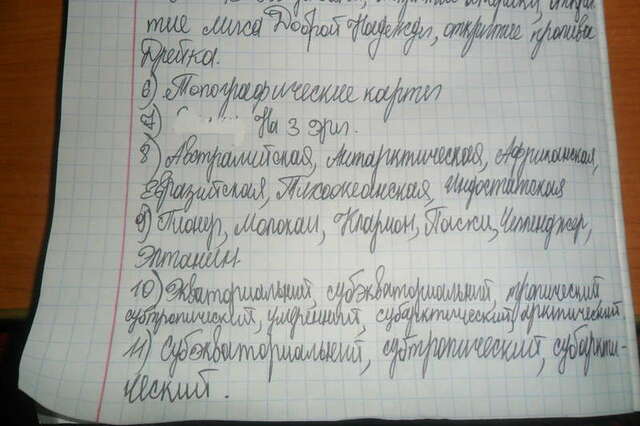 тие мыса Доброй Надежды, открытие пролива
Дрейка.
6) Топографические карты
7) На 3 гр.
8) Австралийская, Антарктическая, Африканская,
Евразийская, Тихоокеанская, Индостатская
9) Пионер, Молокаи, Кларион, Паски, Челленджер,
Элтанин.
10) Экваториальный, субэкваториальный, тропический
субтропический, умеренный, субарктический, арктический
11) Субэкваториальный, субтропический, субаркти-
ческий.